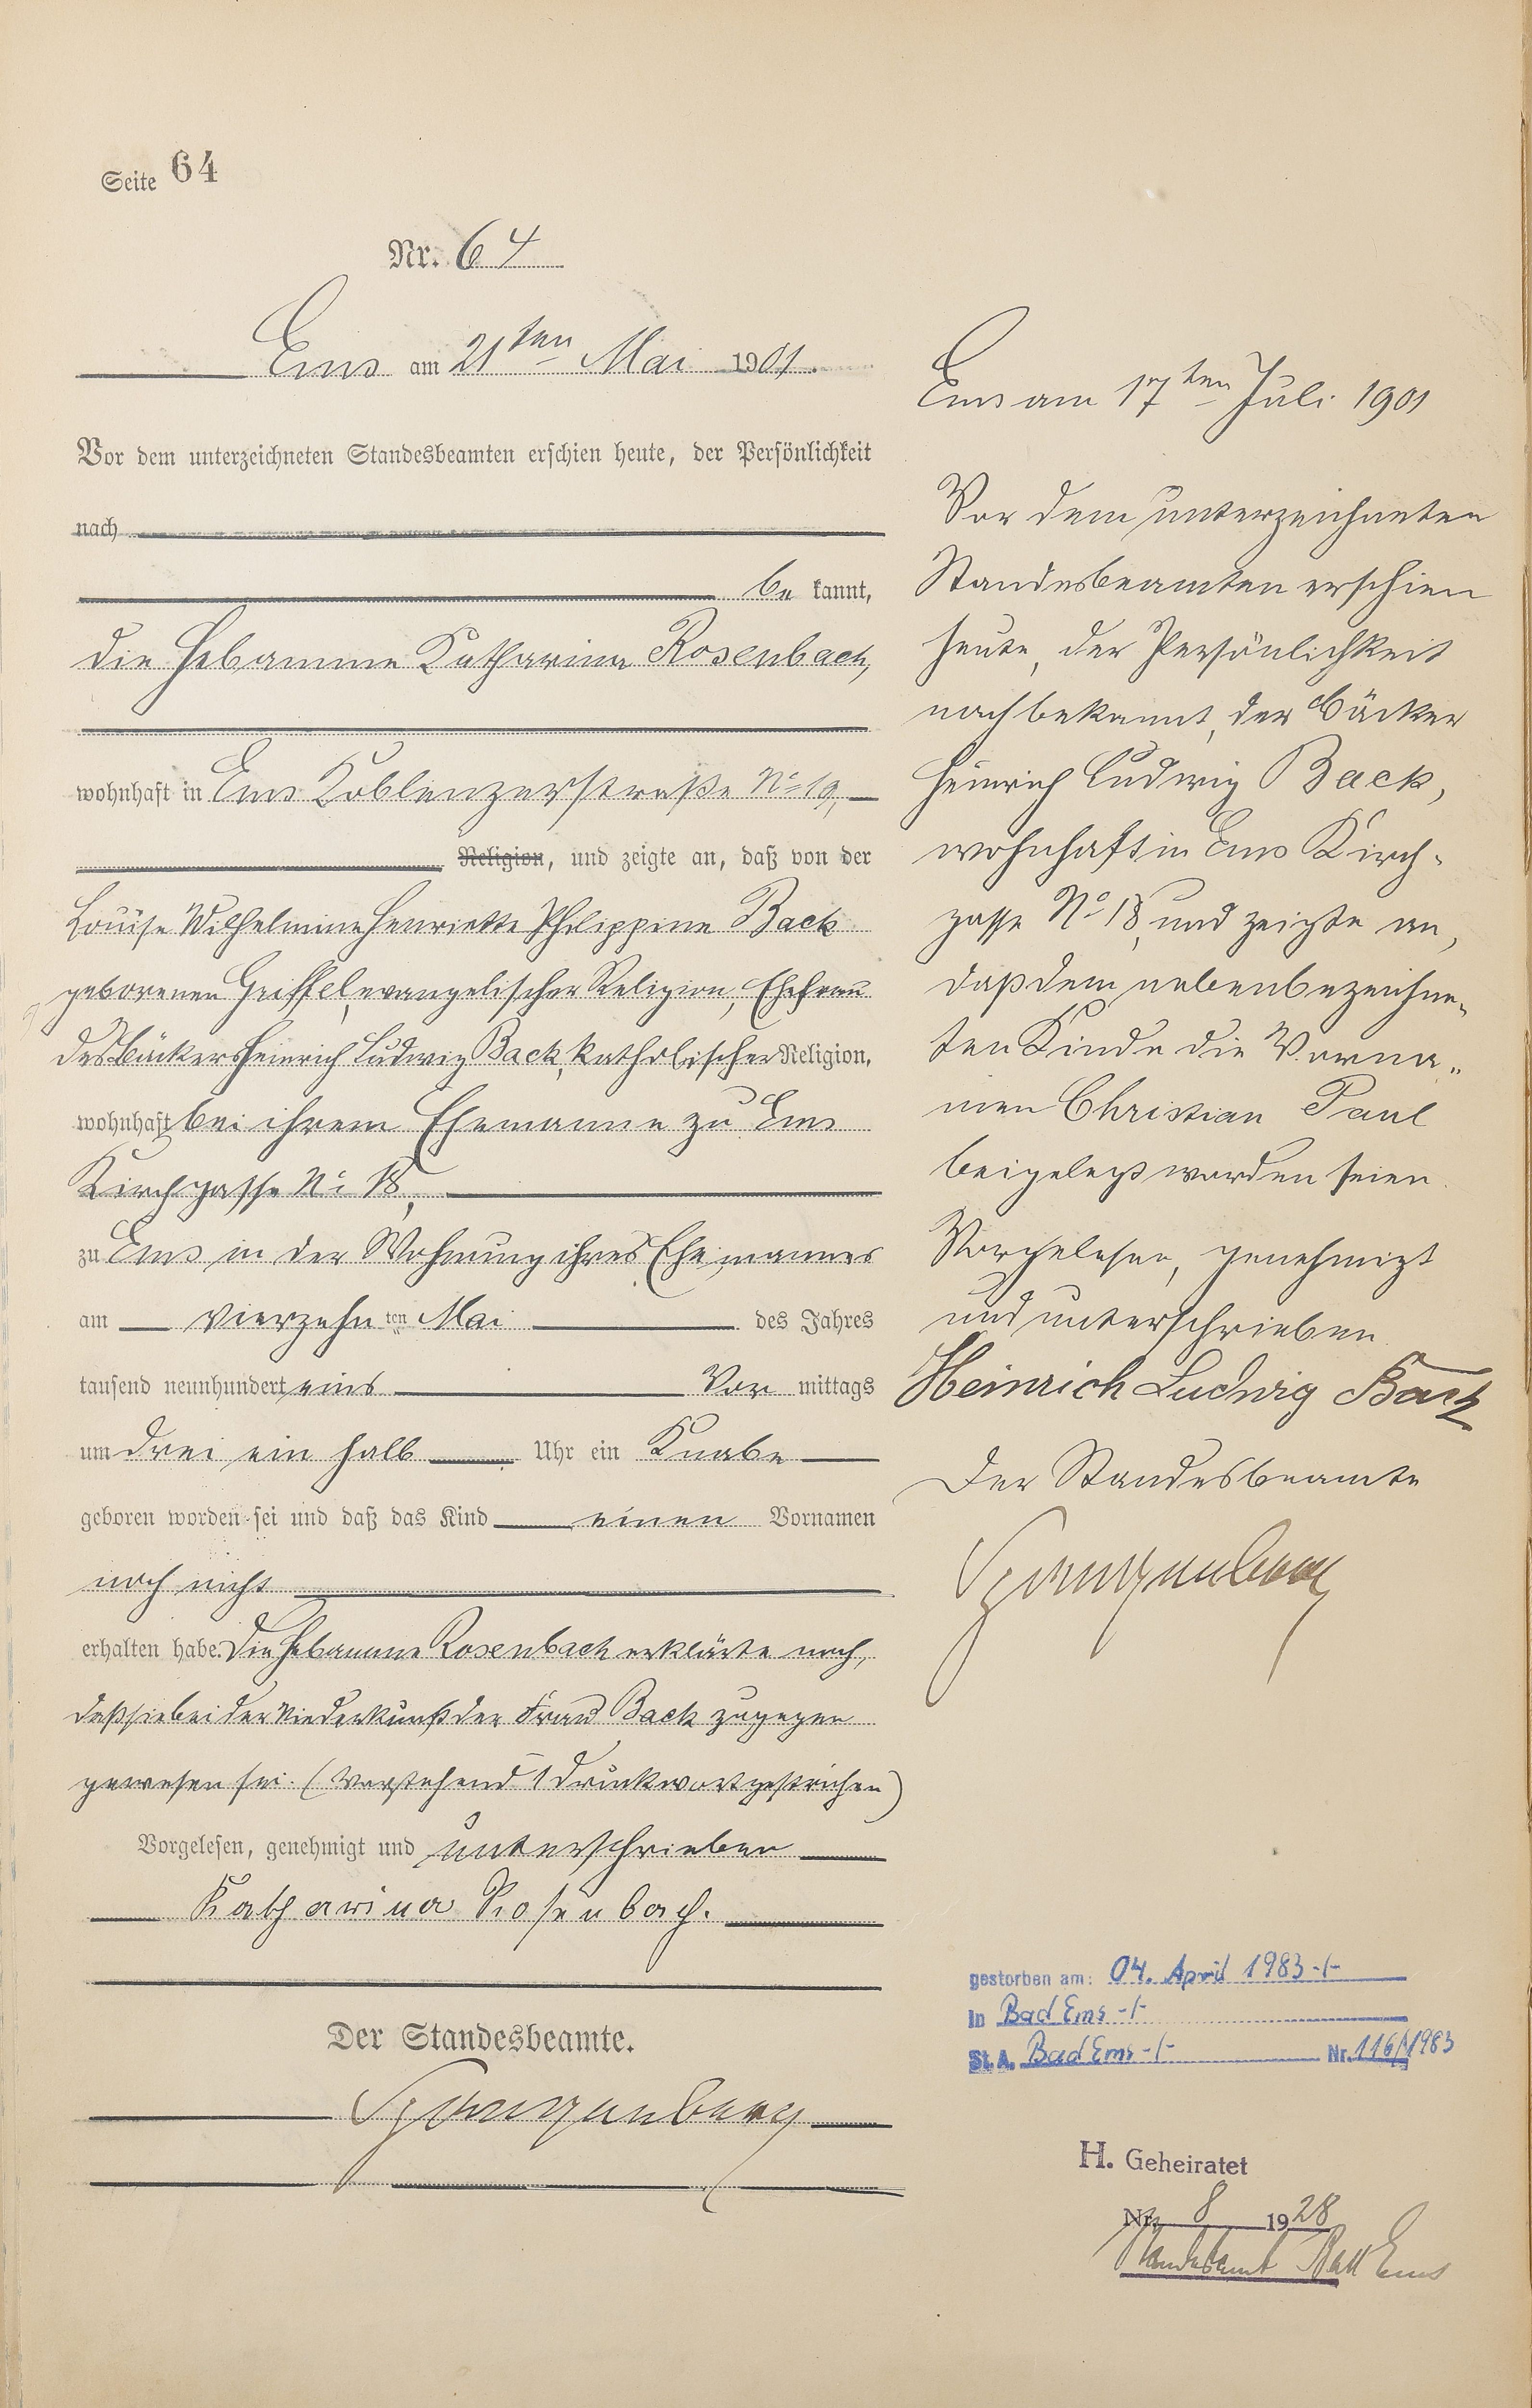 Seite 64
Nr. 64
Ems am 21ten Mai 1901.
Vor dem unterzeichneten Standesbeamten erschien heute, der Persönlichkeit
nach
be kannt,
die Hebamme Katharina Rosenbach,
wohnhaft in Ems Koblenzerstraße No 19,
Religion, und zeigte an, daß von der
Louise Wilhelmine Henriette Philippine Back
geborenen Griffel, evangelischer Religion, Ehefrau
des Bäckers Heinrich Ludwig Back, katholischer Religion,
wohnhaft bei ihrem Ehemanne zu Ems
Kirchgasse No 18,
zu Ems in der Wohnung ihres Ehemannes
am vierzehn ten Mai des Jahres
tausend neunhundert eins Vor mittags
um drei ein halb Uhr ein Knabe
geboren worden sei und daß das Kind einen Vornamen
noch nicht
erhalten habe. Die Hebamme Rosenbach erklärte noch,
daß sie bei der Niederkunft der Frau Back zugegen
gewesen sei. (Vorstehend 1 Druckwort gestrichen)
Vorgelesen, genehmigt und unterschrieben
Katharina Rosenbach.
Der Standesbeamte.
Ems am 17ten Juli 1901
Vor dem unterzeichneten
Standesbeamten erschien
heute, der Persönlichkeit
nach bekannt, der Bäcker
Heinrich Ludwig Back,
wohnhaft in Ems Kirch-
gasse No 18, und zeigte an,
daß dem nebenbezeichne-
ten Kinde die Vorna-
men Christian Paul
beigelegt worden seien.
Vorgelesen, genehmigt
und unterschrieben
Heinrich Ludwig Back
Der Standesbeamte
gestorben am: 04. April 1983 -/-
in Bad Ems -/-
St.A. Bad Ems -/- Nr. 116/1983
H. Geheiratet
Nr. 8 1928
Standesamt Bad Ems